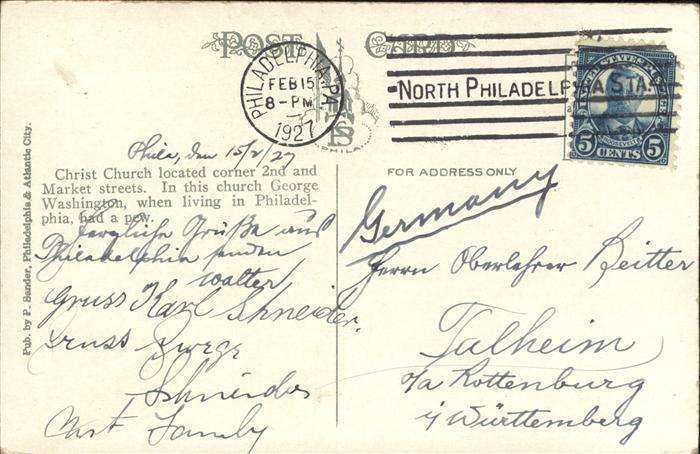 POST CARD
PHILADELPHIA, PA.
FEB 15
8-PM
1927
NORTH PHILADELP A STA.
UNITED STATES POSTAGE
ROOSEVELT
5 CENTS 5
Phila, den 15/2/27
Christ Church located corner 2nd and
Market streets. In this church George
Washington, when living in Philadel-
phia, had a pew.
Herzliche Grüße aus
Philadelphia senden
Walter
Gruss Karl Schneider.
Schneider
Pub. by P. Sander, Philadelphia & Atlantic City.
FOR ADDRESS ONLY
Germany
Herrn Oberlehrer Reitter
Talheim
o/a Rottenburg
i/Württemberg